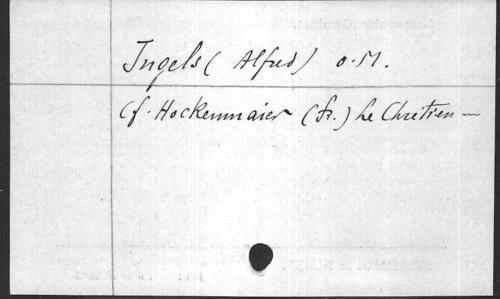 Ingels (Alfred) o. M.
Cf. Hockenmaier (Fr.) Le Chrétien —